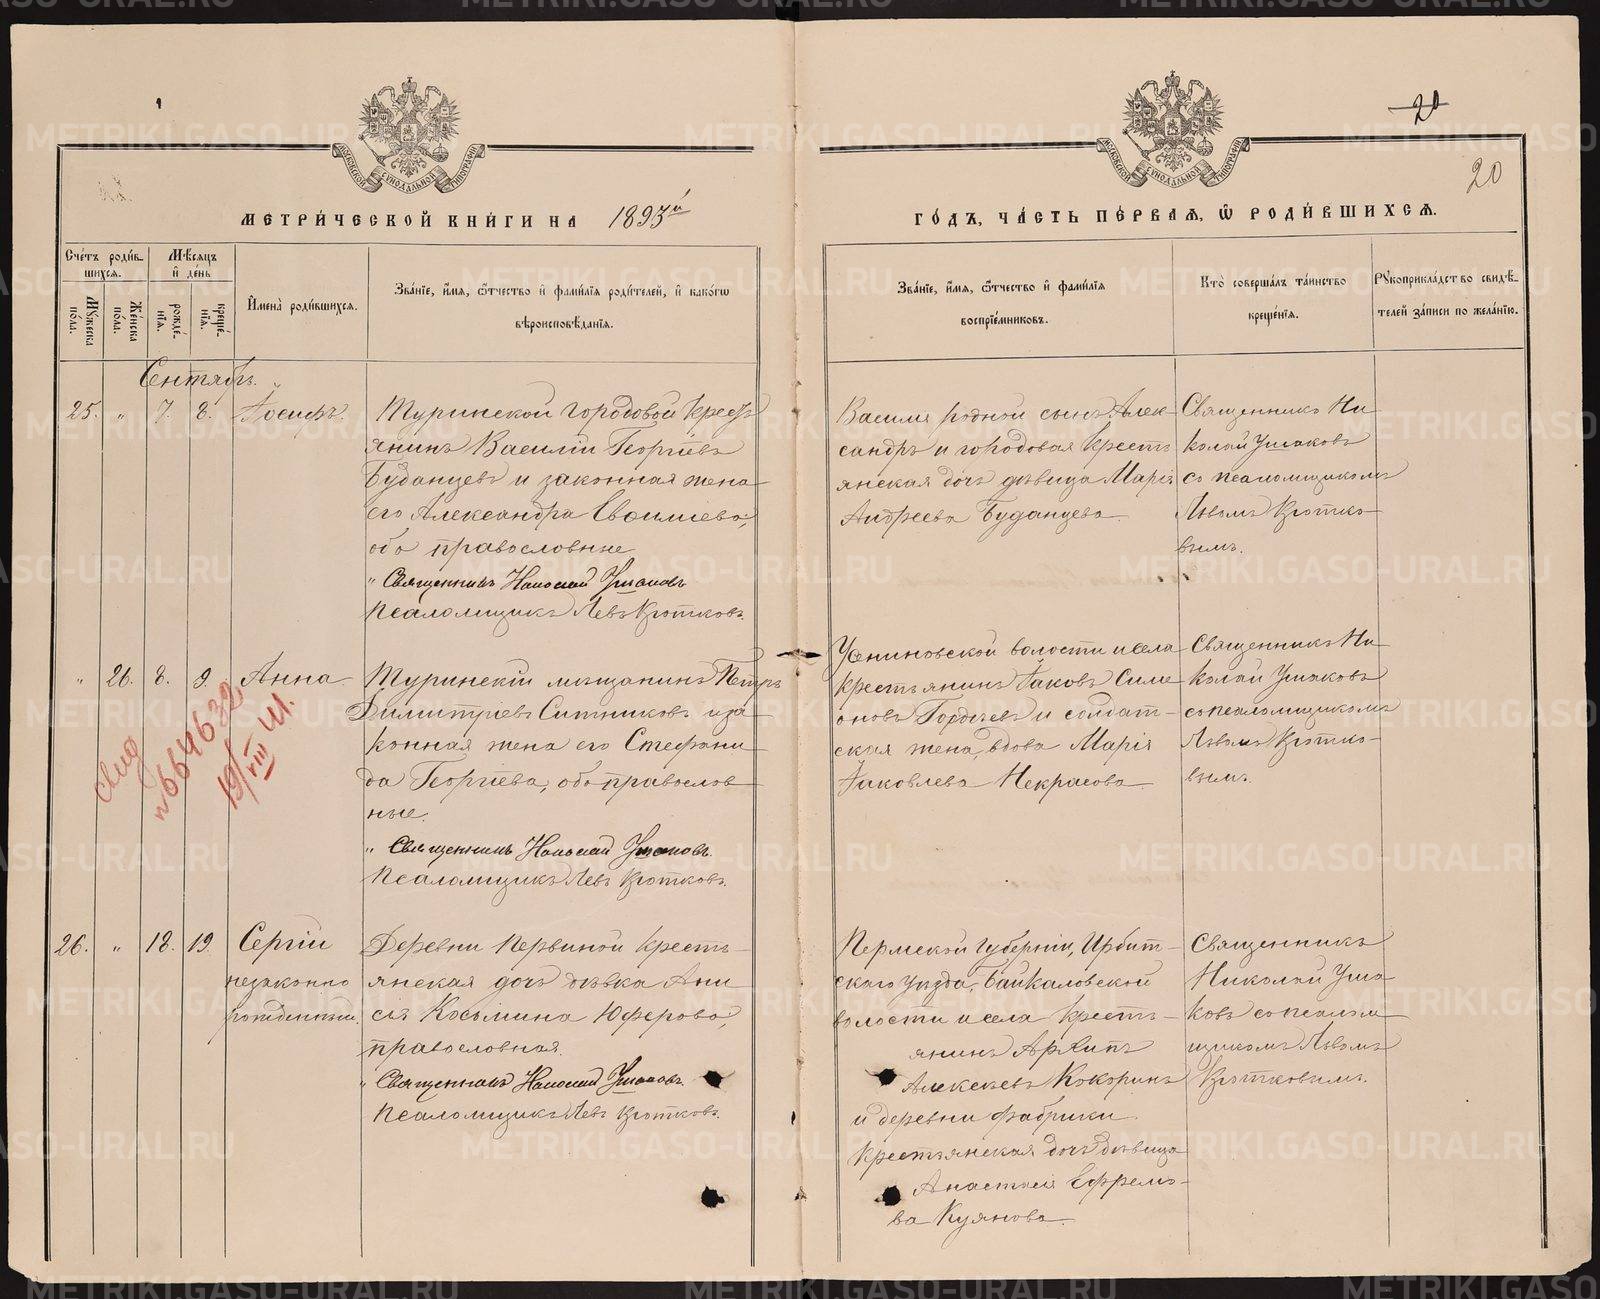 20
20
МЕТРИЧЕСКОЙ КНИГИ НА 1893й
ГОДЪ, ЧАСТЬ ПЕРВАЯ, Ѡ РОДИВШИХСЯ.
МОСКОВСКОЙ СѴНОДАЛЬНОЙ ТИПОГРАФІИ
МОСКОВСКОЙ СѴНОДАЛЬНОЙ ТИПОГРАФІИ
Счетъ родив-
шихся.
Мужеска пола.
Женска пола.
Мѣсяцъ и день
рожде-
нія.
креще-
нія.
Имена родившихся.
Званіе, имя, ѿчество и фамилія родителей, и какогѡ
вѣроисповѣданія.
Званіе, имя, ѿчество и фамилія
воспріемниковъ.
Кто совершалъ таинство
крещенія.
Рукоприкладство свидѣ-
телей записи по желанію.
Сентябрь.
25. " 7. 8. Іосифъ.
Туринской городовой крестъ
янинъ Василій Георгіевъ
Буданцевъ и законная жена
его Александра Васильева,
оба православные
" Священникъ Николай Ушаковъ
Псаломщикъ Левъ Кротковъ.
Василія родной сынъ Алек-
сандръ и городовая крестъ
янская дочь дѣвица Марія
Андреева Буданцева.
Священникъ Ни
колай Ушаковъ
съ псаломщикомъ
Львомъ Кротко-
вымъ.
" 26. 8. 9. Анна
Туринскій мѣщанинъ Петръ
Димитріевъ Ситниковъ и за
конная жена его Стефани
да Георгіева, оба православ
ные.
" Священникъ Николай Ушаковъ.
Псаломщикъ Левъ Кротковъ.
Усениновской волости и села
крестьянинъ Іаковъ Симе
оновъ Гордѣевъ и солдат-
ская жена, вдова Марія
Іаковлева Некрасова
Священникъ Ни
колай Ушаковъ
съ псаломщикомъ
Львомъ Кротко-
вымъ.
свид
№ 664632
19/VIII 41.
26. " 18. 19. Сергій
незаконно
рожденный.
Деревни Первиной кресть-
янская дочь дѣвка Ани
сія Косьмина Юферова,
православная.
" Священникъ Николай Ушаковъ.
Псаломщикъ Левъ Кротковъ.
Пермской губерніи, Ирбит-
скаго уѣзда, Байкаловской
волости и села кресть-
янинъ Архипъ
Алексѣевъ Кокоринъ
и деревни Фабрики
крестьянская дочь дѣвица
Анастасія Ефремо-
ва Куянова.
Священникъ
Николай Уша
ковъ съ псалом
щикомъ Львомъ
Кротковымъ.
METRIKI.GASO-URAL.RU